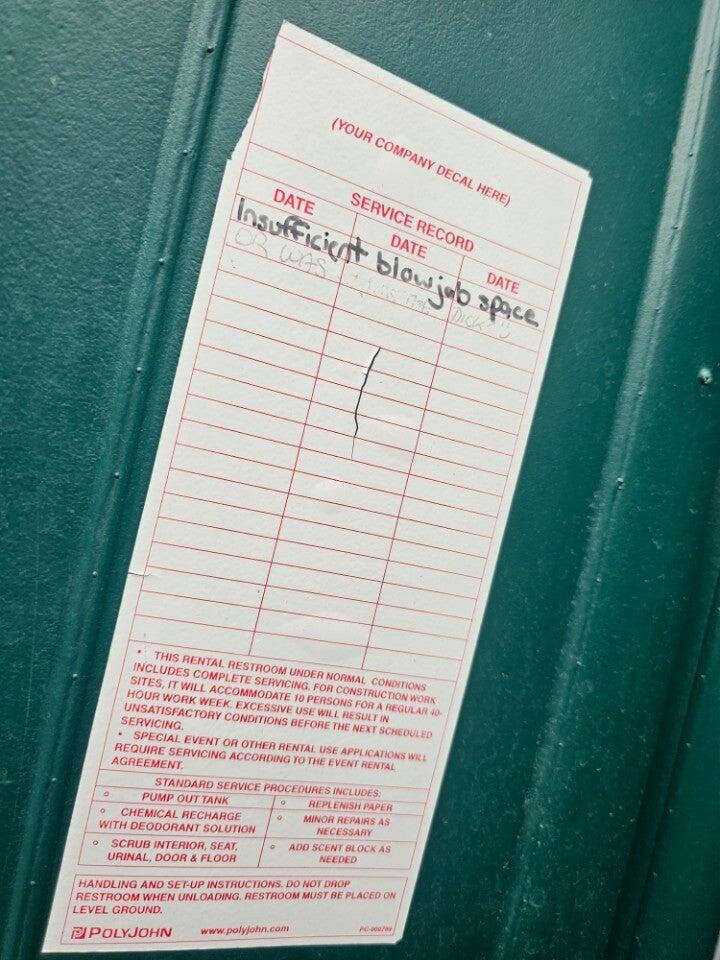 (YOUR COMPANY DECAL HERE)
SERVICE RECORD
DATE DATE DATE
Insufficient blowjob space
OR WAS DICK
• THIS RENTAL RESTROOM UNDER NORMAL CONDITIONS
INCLUDES COMPLETE SERVICING. FOR CONSTRUCTION WORK
SITES, IT WILL ACCOMMODATE 10 PERSONS FOR A REGULAR 40-
HOUR WORK WEEK. EXCESSIVE USE WILL RESULT IN
UNSATISFACTORY CONDITIONS BEFORE THE NEXT SCHEDULED
SERVICING.
• SPECIAL EVENT OR OTHER RENTAL USE APPLICATIONS WILL
REQUIRE SERVICING ACCORDING TO THE EVENT RENTAL
AGREEMENT.
STANDARD SERVICE PROCEDURES INCLUDES:
○ PUMP OUT TANK
○ CHEMICAL RECHARGE
WITH DEODORANT SOLUTION
○ SCRUB INTERIOR, SEAT,
URINAL, DOOR & FLOOR
○ REPLENISH PAPER
○ MINOR REPAIRS AS
NECESSARY
○ ADD SCENT BLOCK AS
NEEDED
HANDLING AND SET-UP INSTRUCTIONS. DO NOT DROP
RESTROOM WHEN UNLOADING. RESTROOM MUST BE PLACED ON
LEVEL GROUND.
POLYJOHN www.polyjohn.com